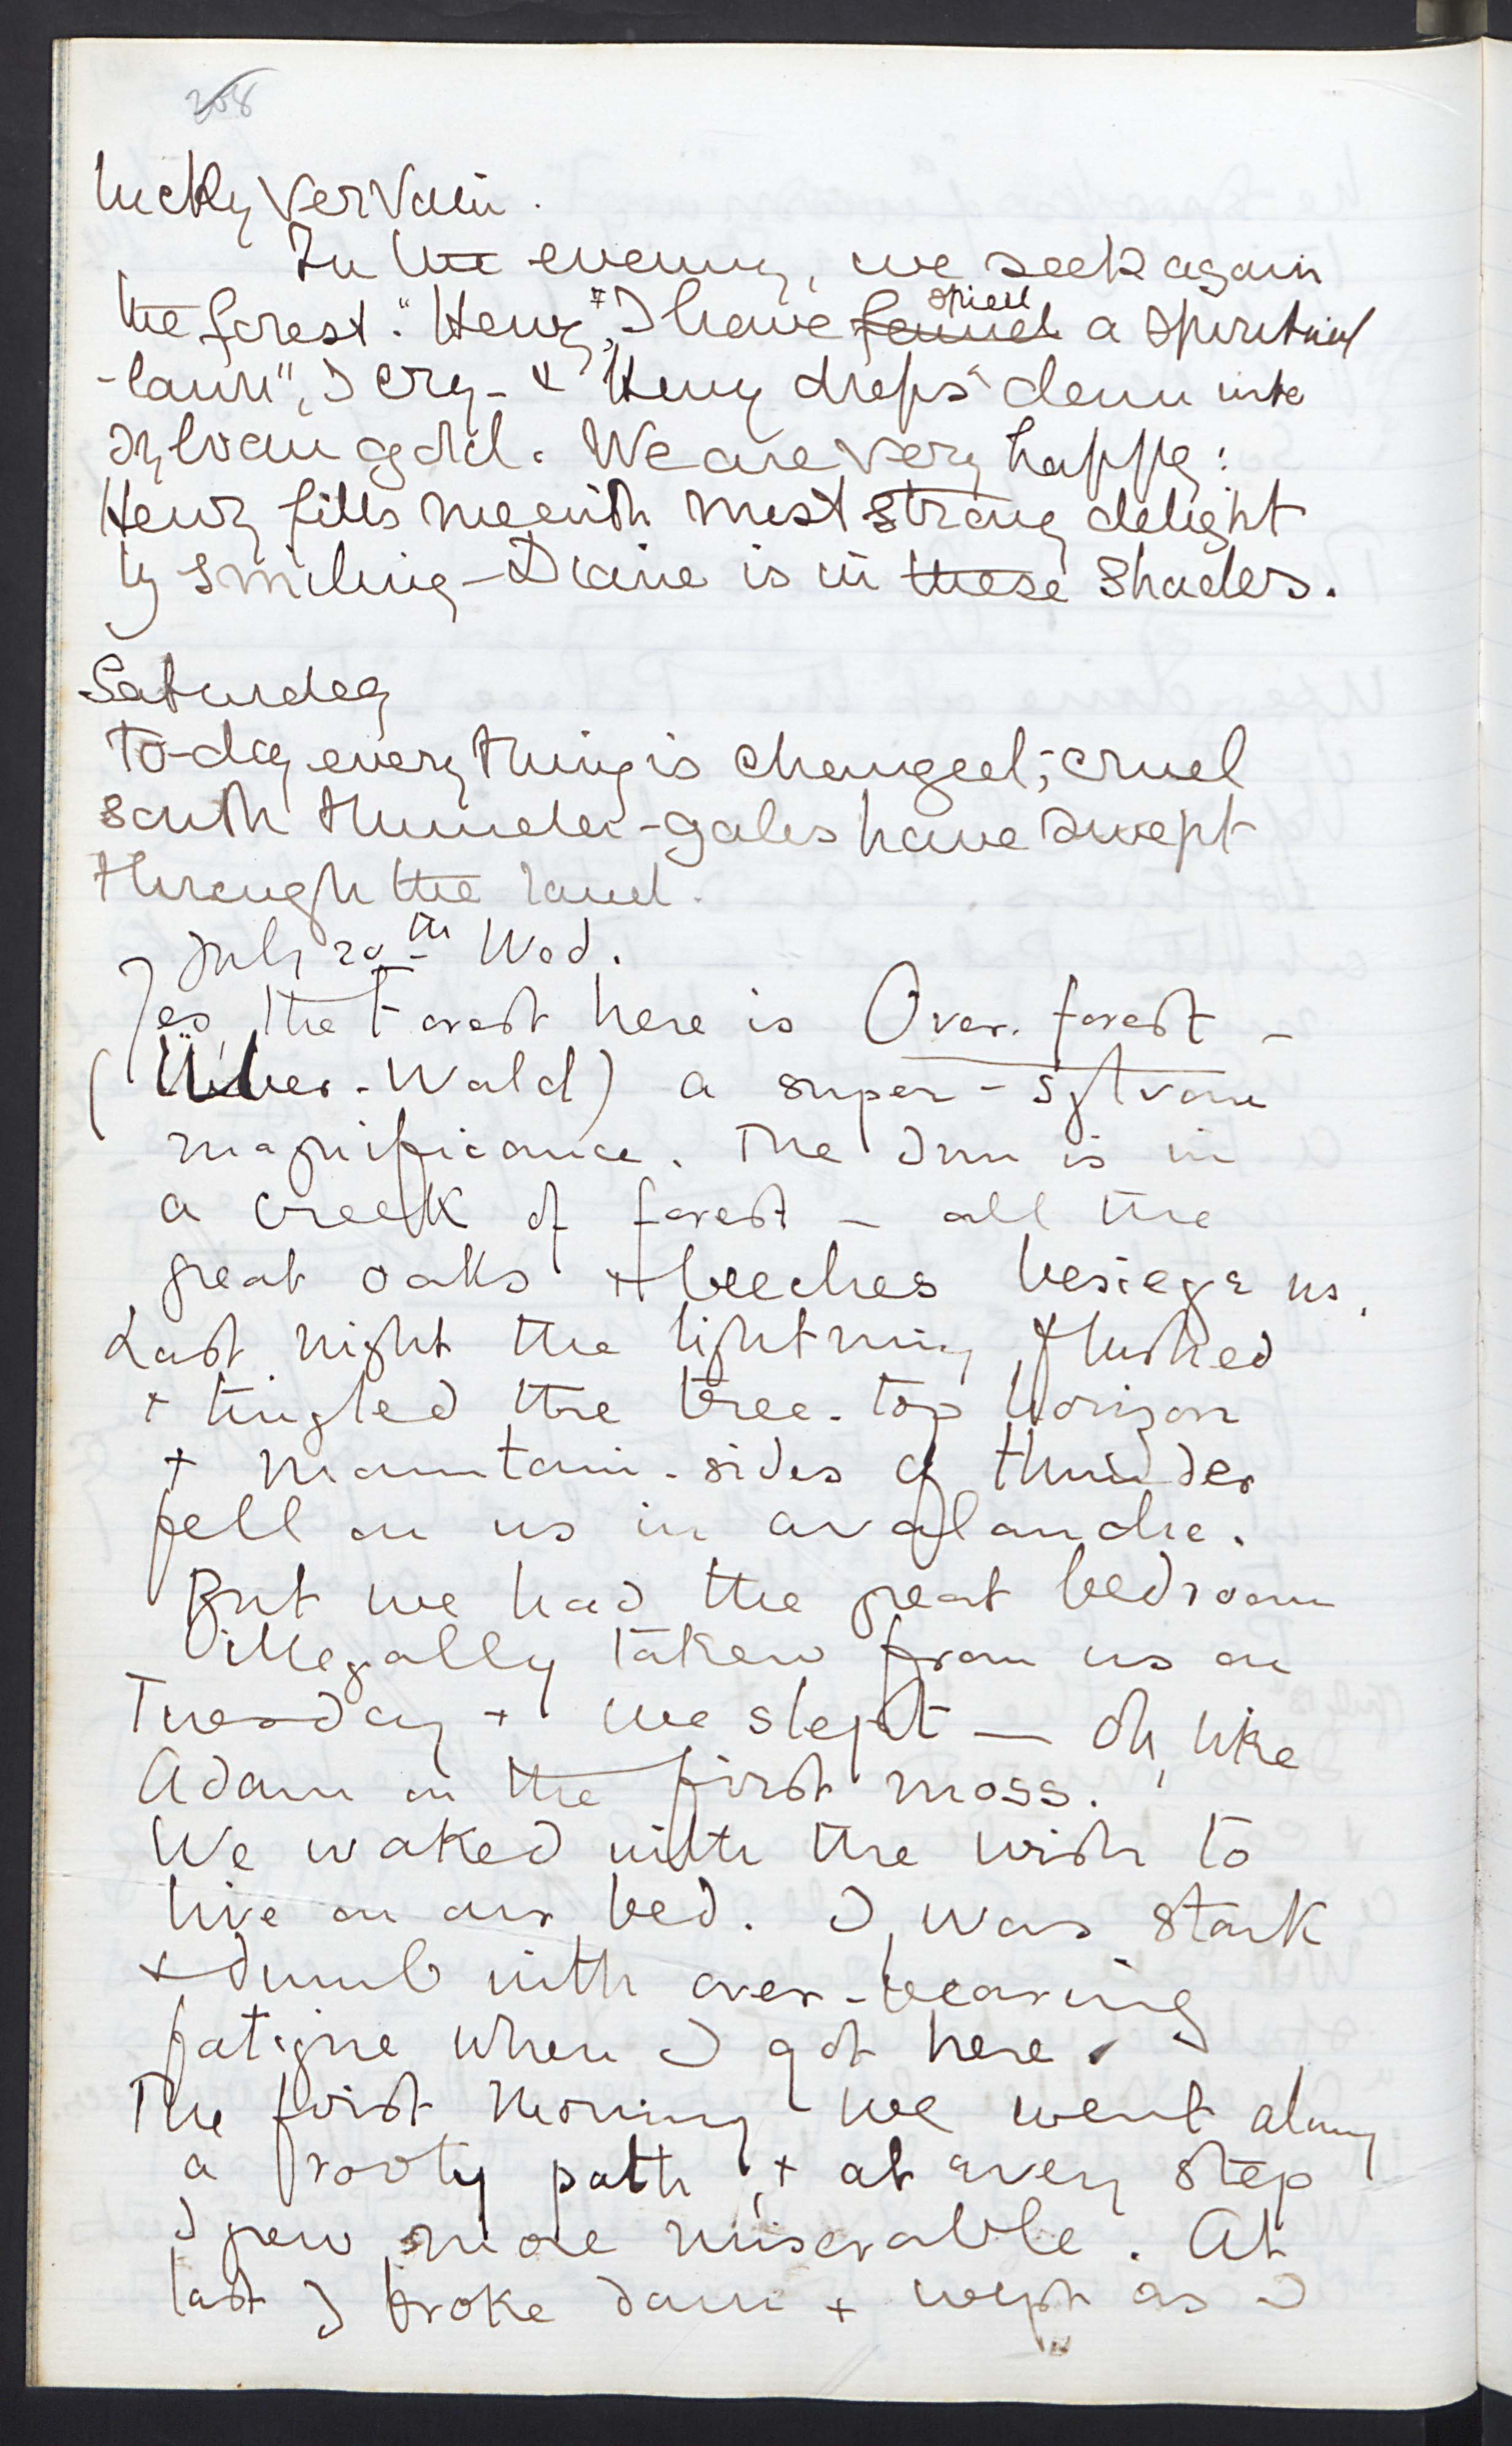 208
lucky Vervain.
In the evening, we seek again
the forest. "Henry", I have found spied a spiritual
-lawn", I cry - & Henry drops down into
sylvan gold. We are very happy:
Henry fills me with most strong delight
by smiling - Diane is in these shades.
Saturday
To-day everything is changed; cruel
south thunder-gales have swept
through the land.
July 20th Wed.
Yes, the Forest here is Over-forest -
(Über-Wald) a super-sylvan
magnificance. The Inn is in
a creek of forest - all the
great oaks & beeches besiege us.
Last night the lightning flushed
+ tingled the tree-top horizon
+ mountain-sides of thunder
fell on us in avalanche.
But we had the great bedroom
illegally taken from us on
Tuesday + we slept — oh, like
Adam on the first moss.
We waked with the wish to
live on our bed. I was stark
+ dumb with over-bearing
fatigue when I got here.
The first morning we went along
a rooty path, + at every step
I grew more miserable. At
last I broke down + wept as I